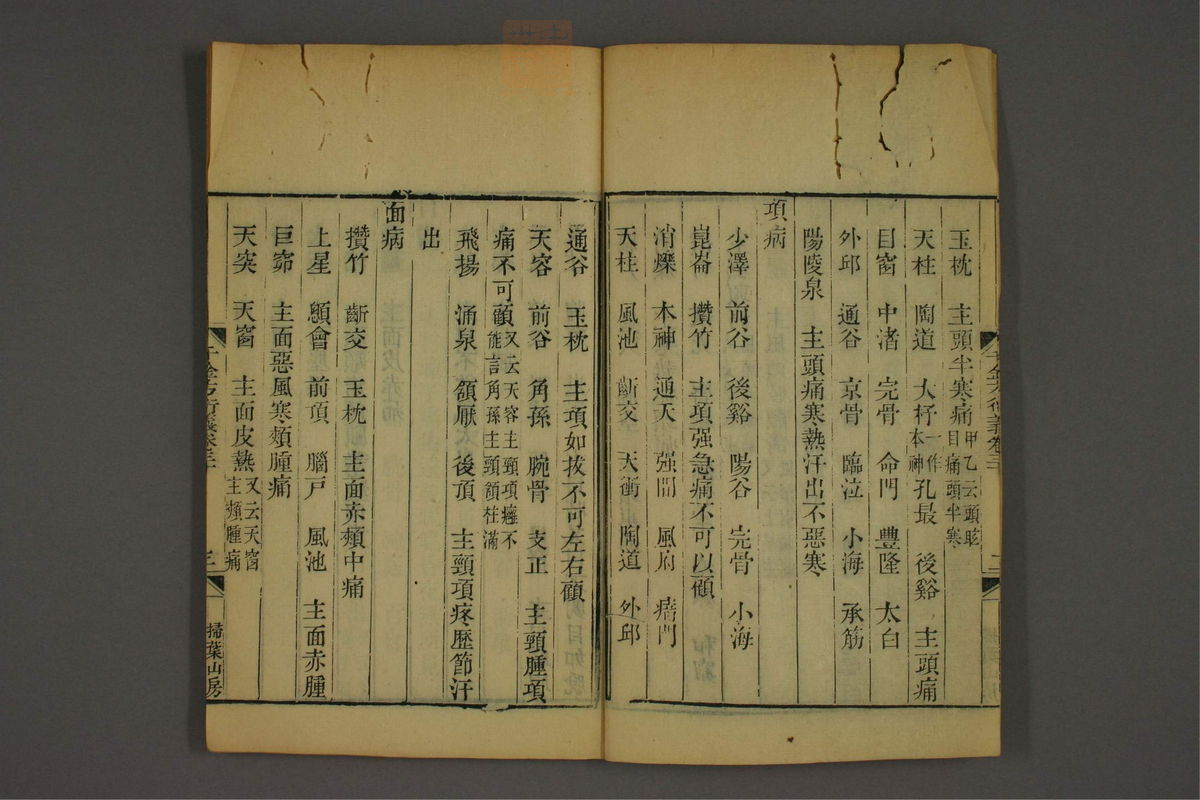 玉枕　主頭半寒痛甲乙云頭眩目痛頭半寒
天柱　陶道　大杼一作本神孔最　後谿　主頭痛
目窗　中渚　完骨　命門　豐隆　太白
外邱　通谷　京骨　臨泣　小海　承筋
陽陵泉　主頭痛寒熱汗出不惡寒
項病
少澤　前谷　後谿　陽谷　完骨　小海
崑崙　攢竹　主項强急痛不可以顧
消爍　本神　通天　强間　風府　瘖門
天柱　風池　齗交　天衝　陶道　外邱
通谷　玉枕　主項如拔不可左右顧
天容　前谷　角孫　腕骨　支正　主頸腫項
痛不可顧又云天容主頸項癰不能言角孫主頸頷柱滿
飛揚　涌泉　頷厭　後頂　主頸項疼歷節汗
出
面病
攢竹　齗交　玉枕　主面赤頰中痛
上星　顖會　前頂　腦戶　風池　主面赤腫
巨窌　主面惡風寒頰腫痛
天突　天窗　主面皮熱又云天窗主頰腫痛
千金方衍義卷三十
三
掃葉山房